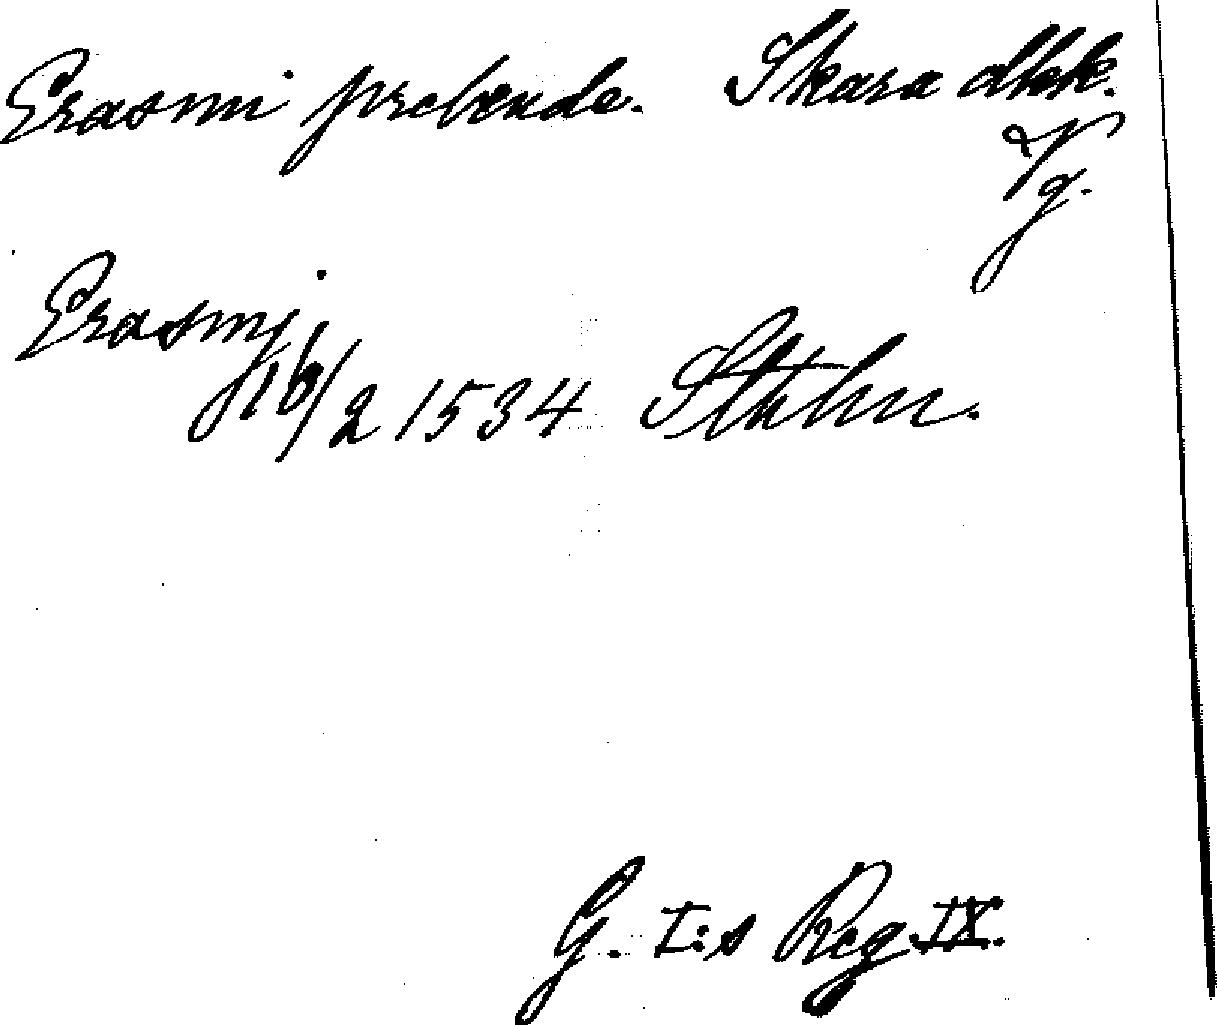 Erasmi prebende. Skara dkk.
Vg.
Erasmj
16/2 1534 Sthlm.
G. I:s Reg IX.